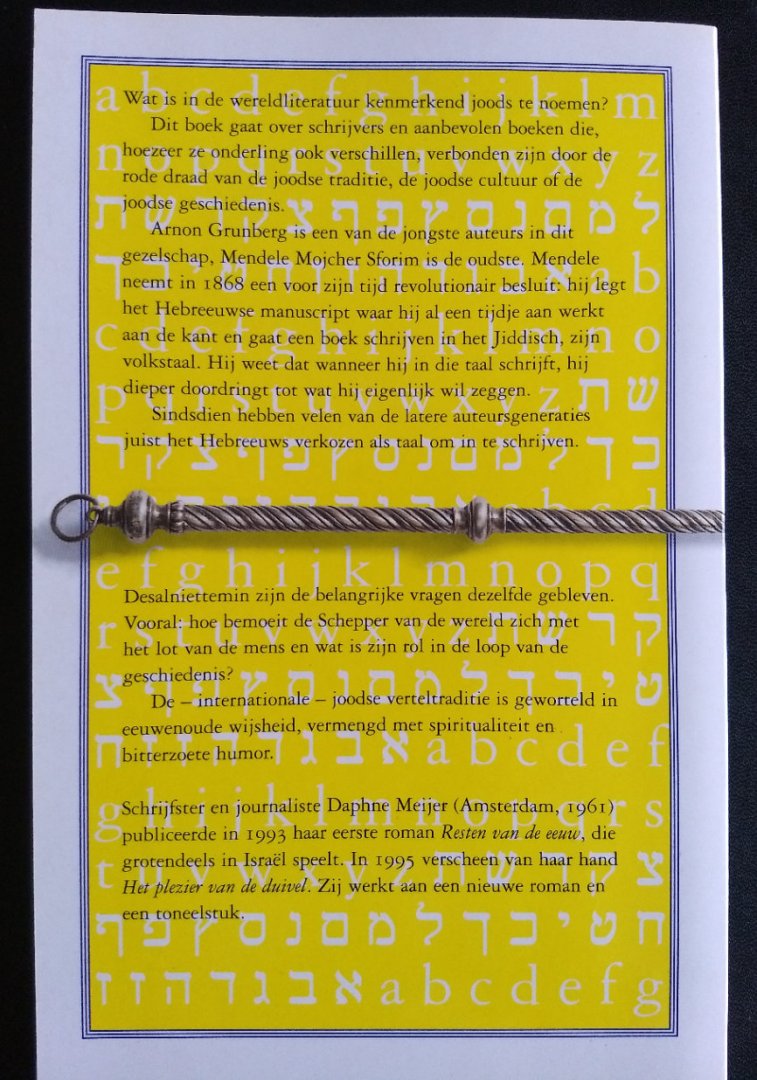 Wat is in de wereldliteratuur kenmerkend joods te noemen?
Dit boek gaat over schrijvers en aanbevolen boeken die,
hoezeer ze onderling ook verschillen, verbonden zijn door de
rode draad van de joodse traditie, de joodse cultuur of de
joodse geschiedenis.
Arnon Grunberg is een van de jongste auteurs in dit
gezelschap, Mendele Mojcher Sforim is de oudste. Mendele
neemt in 1868 een voor zijn tijd revolutionair besluit: hij legt
het Hebreeuwse manuscript waar hij al een tijdje aan werkt
aan de kant en gaat een boek schrijven in het Jiddisch, zijn
volkstaal. Hij weet dat wanneer hij in die taal schrijft, hij
dieper doordringt tot wat hij eigenlijk wil zeggen.
Sindsdien hebben velen van de latere auteursgeneraties
juist het Hebreeuws verkozen als taal om in te schrijven.
Desalniettemin zijn de belangrijke vragen dezelfde gebleven.
Vooral: hoe bemoeit de Schepper van de wereld zich met
het lot van de mens en wat is zijn rol in de loop van de
geschiedenis?
De – internationale – joodse verteltraditie is geworteld in
eeuwenoude wijsheid, vermengd met spiritualiteit en
bitterzoete humor.
Schrijfster en journaliste Daphne Meijer (Amsterdam, 1961)
publiceerde in 1993 haar eerste roman Resten van de eeuw, die
grotendeels in Israël speelt. In 1995 verscheen van haar hand
Het plezier van de duivel. Zij werkt aan een nieuwe roman en
een toneelstuk.